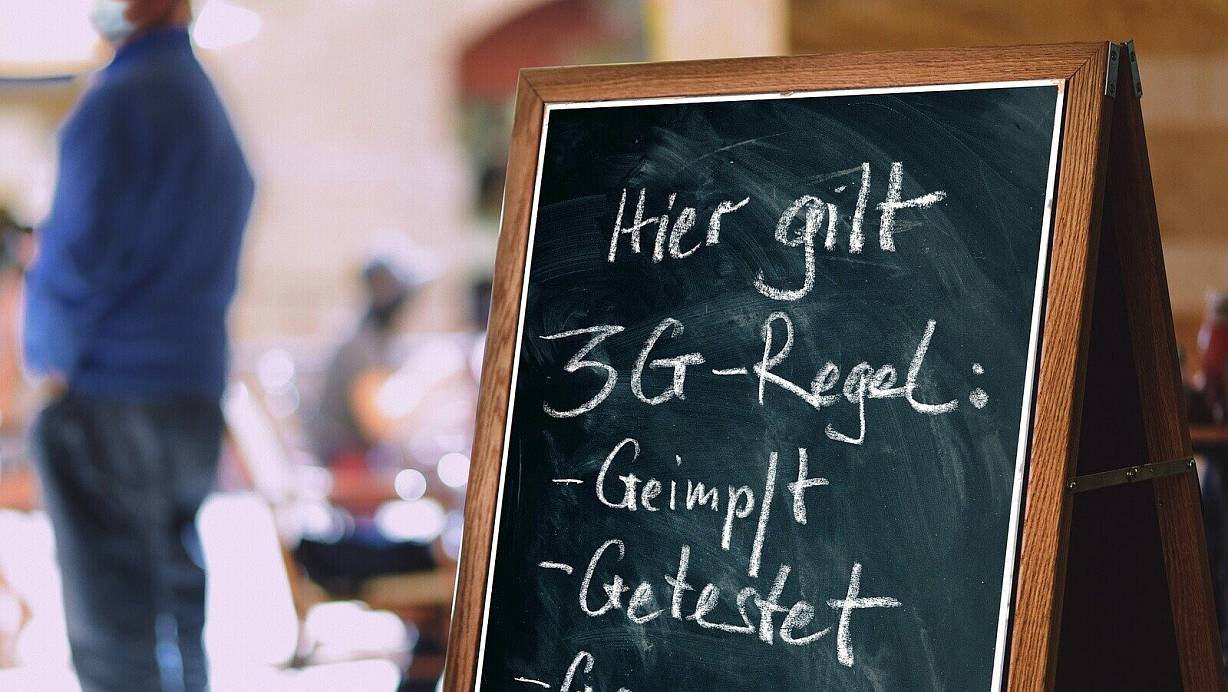 Hier gilt
3G-Regel:
- Geimpft
- Getestet